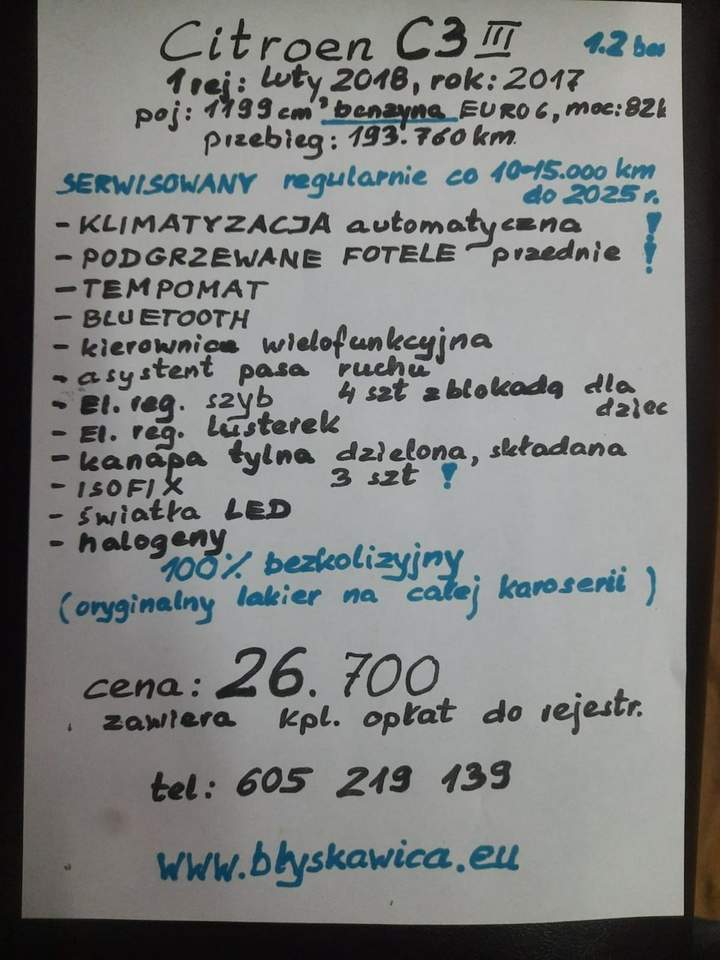 Citroen C3 III 1.2 ben
1 rej: luty 2018, rok: 2017
poj: 1199 cm³ benzyna EURO 6, moc: 82k
przebieg: 193.760 km
SERWISOWANY regularnie co 10-15.000 km
do 2025 r.
- KLIMATYZACJA automatyczna !
- PODGRZEWANE FOTELE - przednie !
- TEMPOMAT
- BLUETOOTH
- kierownica wielofunkcyjna
- asystent pasa ruchu
- El. reg. szyb 4 szt z blokadą dla
dziec
- El. reg. lusterek
- kanapa tylna dzielona, składana
- ISOFIX 3 szt !
- światła LED
- halogeny
100% bezkolizyjny
(oryginalny lakier na całej karoserii)
cena: 26.700
zawiera kpl. opłat do rejestr.
tel: 605 219 139
www.błyskawica.eu